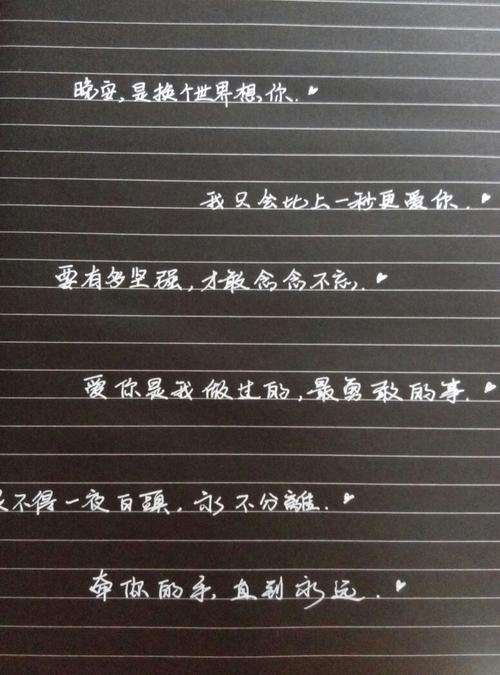 晚安,是换个世界想你.
我只会比上一秒更爱你.
要有多坚强,才敢念念不忘.
爱你是我做过的,最勇敢的事.
不得一夜白頭,永不分離.
牵你的手,直到永远.